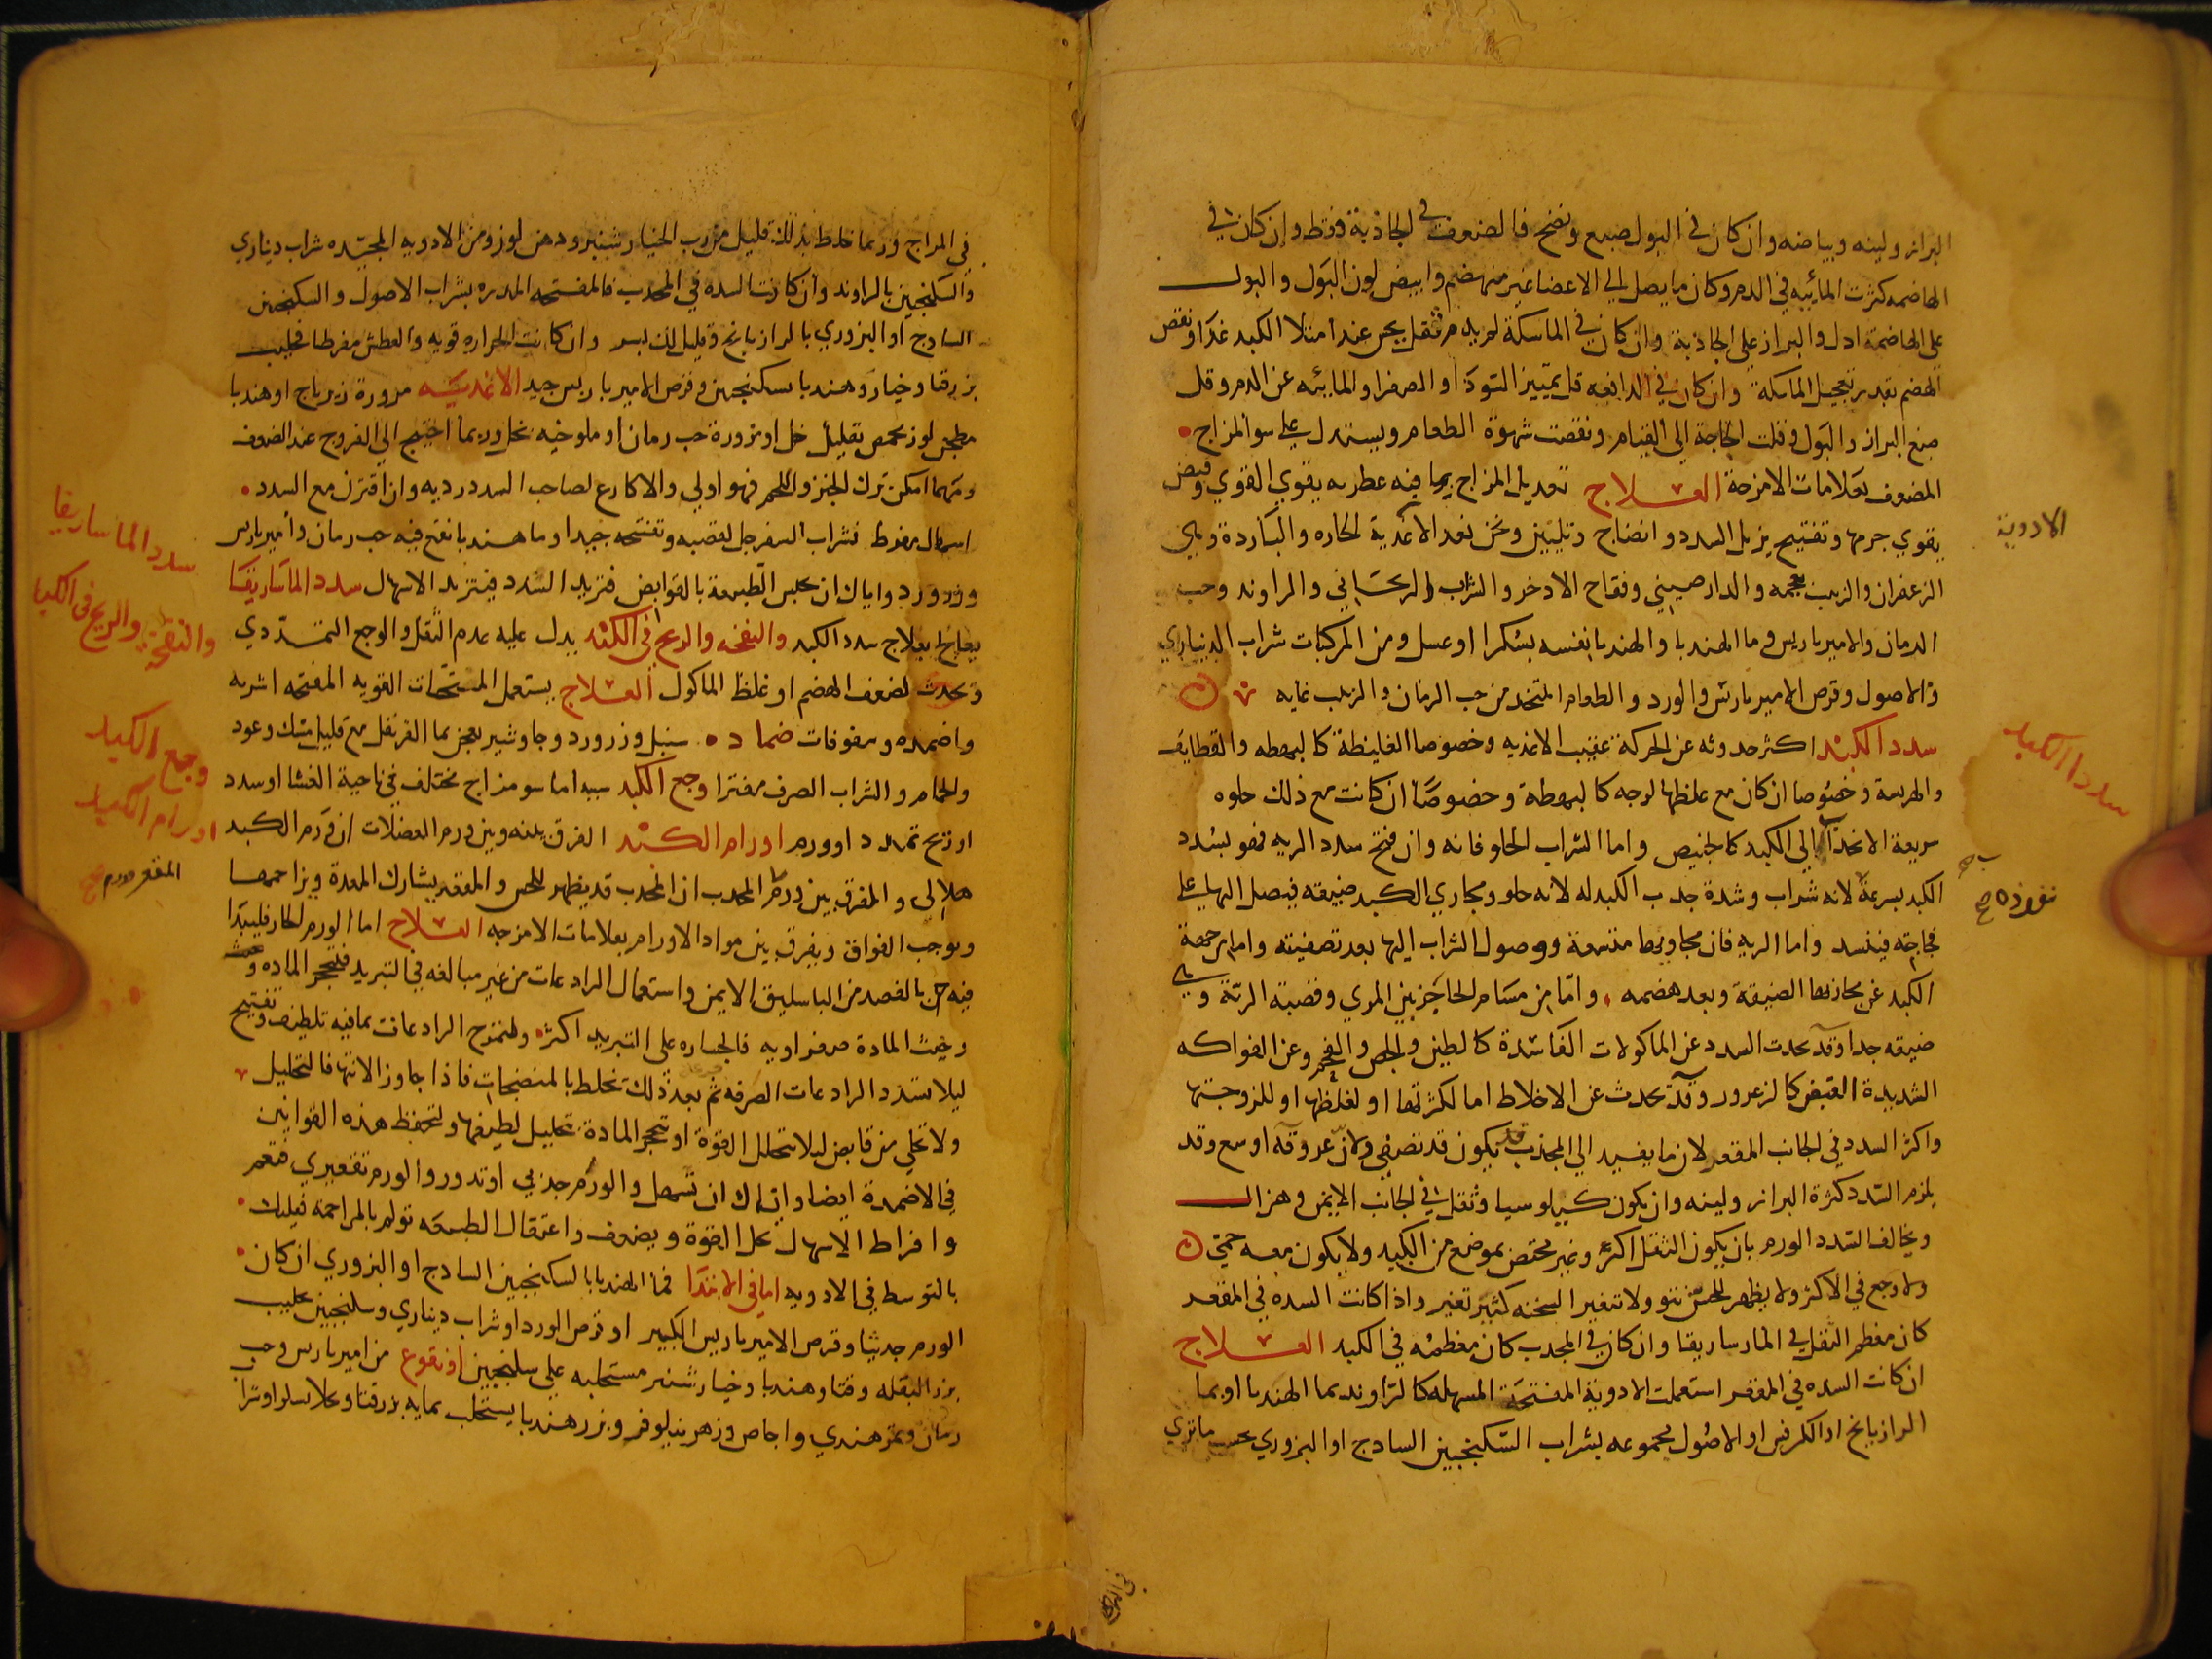 البراز ولينه وبياضه وان كان في البول صبغ ونضج فالضعف في الجاذبة فقط وان كان في
الهاضمه كثرت المائيه في الدم وكان ما يصل الى الاعضا غير منهضم وابيض لون البول والبول
على الهاضمة ادل والبراز على الجاذبة وان كان في الماسكة لم يدم ثقل يحس عند امتلا الكبد غذا ونقص
الهضم بقدر تعجيل الماسكة وان كان في الدافعه قل تمييز السودا او الصفرا والمائيه عن الدم وقل
صبغ البراز والبول وقلت الحاجة الى القيام ونقصت شهوة الطعام ويستدل على سو المزاج
المضعف بعلامات الامزجة العلاج تعديل المزاج بما فيه عطريه يقوي القوي وقبض
يقوي جرمها وتفتيح يزيل السدد وانضاج وتليين ونحن نعد الاغذية الحاره والباردة وهي
الادوية
الزعفران والزبيب بعجمه والدار صيني وفقاح الاذخر والشراب الريحاني والراوند وحب
الرمان والامير باريس وما الهندبا والهندبا نفسه بسكر او عسل ومن المركبات شراب الديناري
والاصول وقرص الامير باريس والورد والطعام المتخذ من حب الرمان والزبيب غايه
سدد الكبد اكثر حدوثه عن الحركة عقيب الاغذيه وخصوصا الغليظة كالبهطه والقطايف
سدد الكبد
والهريسة وخصوصا ان كان مع غلظها لزجه كالبهطة وخصوصا ان كانت مع ذلك حلوه
سريعة الانجذاب الى الكبد كالخبيص واما الشراب الحلو فانه وان فتح سدد الريه فهو يسدد
الكبد بسرعة لانه شراب وشدة جذب الكبد له لانه حلو ومجاري الكبد ضيقه فيصل اليها على
نفوذه صح
فجاجته فينسد واما الريه فان مجاريها متسعة ووصول الشراب اليها بعد تصفيته واما من جهة
الكبد عن مجاريها الضيقة وبعد هضمه واما من مسام الحاجز بين المري وقصبة الرئة وهي
ضيقه جدا وقد يحدث السدد عن الماكولات الفاسدة كالطين والجص والفحم وعن الفواكه
الشديدة القبض كالزعرور وقد تحدث عن الاخلاط اما لكثرتها او لغلظها او للزوجتها
واكثر السدد في الجانب المقعر لان ما يفسد الى المحدب يكون قد تصفى ولان عروقه اوسع وقد
يلزم السدد كثرة البراز ولينه وان يكون كيلوسيا وثقل في الجانب الايمن وهزال
ويخالف السدد الورم بان يكون الثقل اكثر وغير مختص بموضع من الكبد ولا يكون معه حمى
ولا وجع في الاكثر ولا يظهر للحس نتو ولا تتغير السحنه كثير تغير واذا كانت السده في المقعر
كان معظم الثقل في المارساريقا وان كان في المحدب كان معظمه في الكبد العلاج
ان كانت السده في المقعر استعملت الادوية المفتحة المسهله كالراوند بما الهندبا او بما
الرازيانج او الكرفس او الاصول مجموعه بشراب السكنجبين السادج او البزوري بحسب ما ترى
في المزاج وربما خلط بذلك قليل من رب الخيار شنبر ودهن لوز ومن الادويه الجيده شراب ديناري
والسكنجبين بالراوند وان كانت السده في المحدب فالمفتحه المدره بشراب الاصول والسكنجبين
السادج او البزوري بالرازيانج وقليل لك بسر وان كانت الحراره قويه والعطش مفرطا فحليب
بزر قثا وخيار وهندبا بسكنجبين وقرص الامير باريس جيد الاغذيه مزورة زيرباج او هندبا
مطجن لوز محمص بقليل خل او مزورة حب رمان او ملوخيه بخل وربما احتيج الى الفروج عند الضعف
ومهما امكن ترك الخبز واللحم فهو اولى والاكارع لصاحب السدد رديه وان اقترن مع السدد
اسهال مفرط فشراب السفرجل لقبضه وتفتيحه جيد او ما هندبا نقع فيه حب رمان وامير باريس
وورد واياك ان تحبس الطبيعة بالقوابض فتزيد السدد فيتزيد الاسهال سدد الماساريقا
سدد الماساريقا
يعالج بعلاج سدد الكبد والنفخه والريح في الكبد يدل عليه عدم الثقل والوجع التمددي
والنفخة والريح في الكبد
وتحدث لضعف الهضم او غلظ الماكول العلاج يستعمل المسخنات القويه المفتحه اشربه
واضمده وسفوفات ضماد سنبل وزرورد وجاوشير يعجن بما القرنفل مع قليل مسك وعود
والحمام والشراب الصرف مفترا وجع الكبد سببه اما سو مزاج مختلف في ناحية الغشا او سدد
وجع الكبد
او ريح تمدد او ورم اورام الكبد الفرق بينه وبين ورم العضلات ان ورم الكبد
اورام الكبد
هلالي والفرق بين ورم المحدب ان المحدب قد يظهر للحس والمقعر يشارك المعدة ويزاحمها
المقعر وورم صح
ويوجب الفواق ويفرق بين مواد الاورام بعلامات الامزجه العلاج اما الورم الحار فليبتدا
فيه بالفصد من الباسليق الايمن واستعمال الرادعات من غير مبالغه في التبريد فتتحجر الماده
وحيث المادة صفراويه فالجساره على التبريد اكثر ولتمزج الرادعات بما فيه تلطيف وتفتيح
ليلا تسدد الرادعات الصرفه ثم بعد ذلك تخلط بالمنضجات فاذا جاوز الانتها فالتحليل
ولا تخلي من قابض ليلا تتحلل القوة او تتحجر المادة بتحليل لطيفها ولتحفظ هذه القوانين
في الاضمدة ايضا واياك ان تسهل والورم حدبي او تدر والورم تقعيري فتعم
وافراط الاسهال يحل القوة ويضعف واعتقال الطبيعه تولم بالمزاحمة فعليك
بالتوسط في الادويه اما في الابتدا فما الهندبا بالسكنجبين السادج او البزوري ان كان
الورم حديثا وقرص الامير باريس الكبير او قرص الورد او شراب ديناري وسكنجبين بحليب
بزر البقله وقثا وهندبا وخيار شنبر مستحلبه على سكنجبين او نقوع من امير باريس وحب
رمان وتمر هندي واجاص وزهر نيلوفر وبزر هندبا يستحلب بمايه بزر قثا ويحلا بسكر او شراب